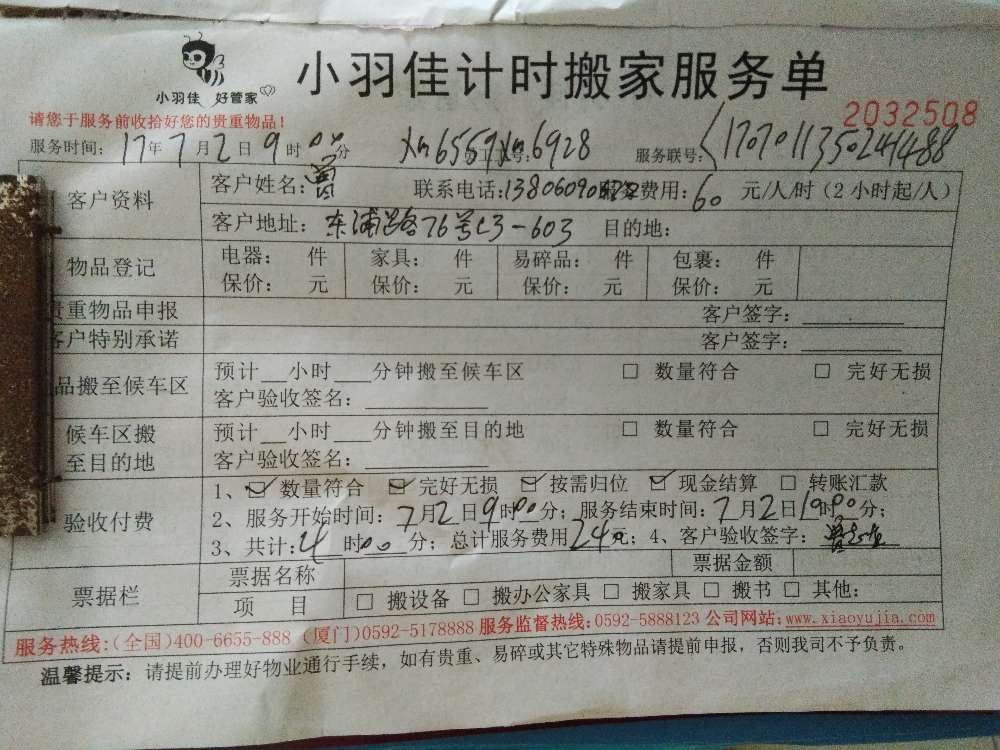 小羽佳计时搬家服务单
小羽佳 好管家
请您于服务前收拾好您的贵重物品！
2032508
服务时间：17年7月2日9时00分 6559 工号：6928 服务联号：170701135024488
客户资料 客户姓名：曾 联系电话：13806090 服务费用：60 元/人/时（2小时起/人）
客户地址：东浦路76号C3-603 目的地：
物品登记 电器： 件 家具： 件 易碎品： 件 包裹： 件
保价： 元 保价： 元 保价： 元 保价： 元
贵重物品申报 客户签字：
客户特别承诺 客户签字：
品搬至候车区 预计__小时___分钟搬至候车区 □ 数量符合 □ 完好无损
客户验收签名：
候车区搬至目的地 预计__小时___分钟搬至目的地 □ 数量符合 □ 完好无损
客户验收签名：
验收付费 1、☑ 数量符合 ☑ 完好无损 ☑ 按需归位 ☑ 现金结算 □ 转账汇款
2、服务开始时间：7月2日9时00分；服务结束时间：7月2日1时00分；
3、共计：4时00分；总计服务费用24元；4、客户验收签字：
票据栏 票据名称 票据金额
项 目 □ 搬设备 □ 搬办公家具 □ 搬家具 □ 搬书 □ 其他：
服务热线：(全国)400-6655-888（厦门)0592-5178888 服务监督热线：0592-5888123 公司网站：www.xiaoyujia.com
温馨提示：请提前办理好物业通行手续，如有贵重、易碎或其它特殊物品请提前申报，否则我司不予负责。